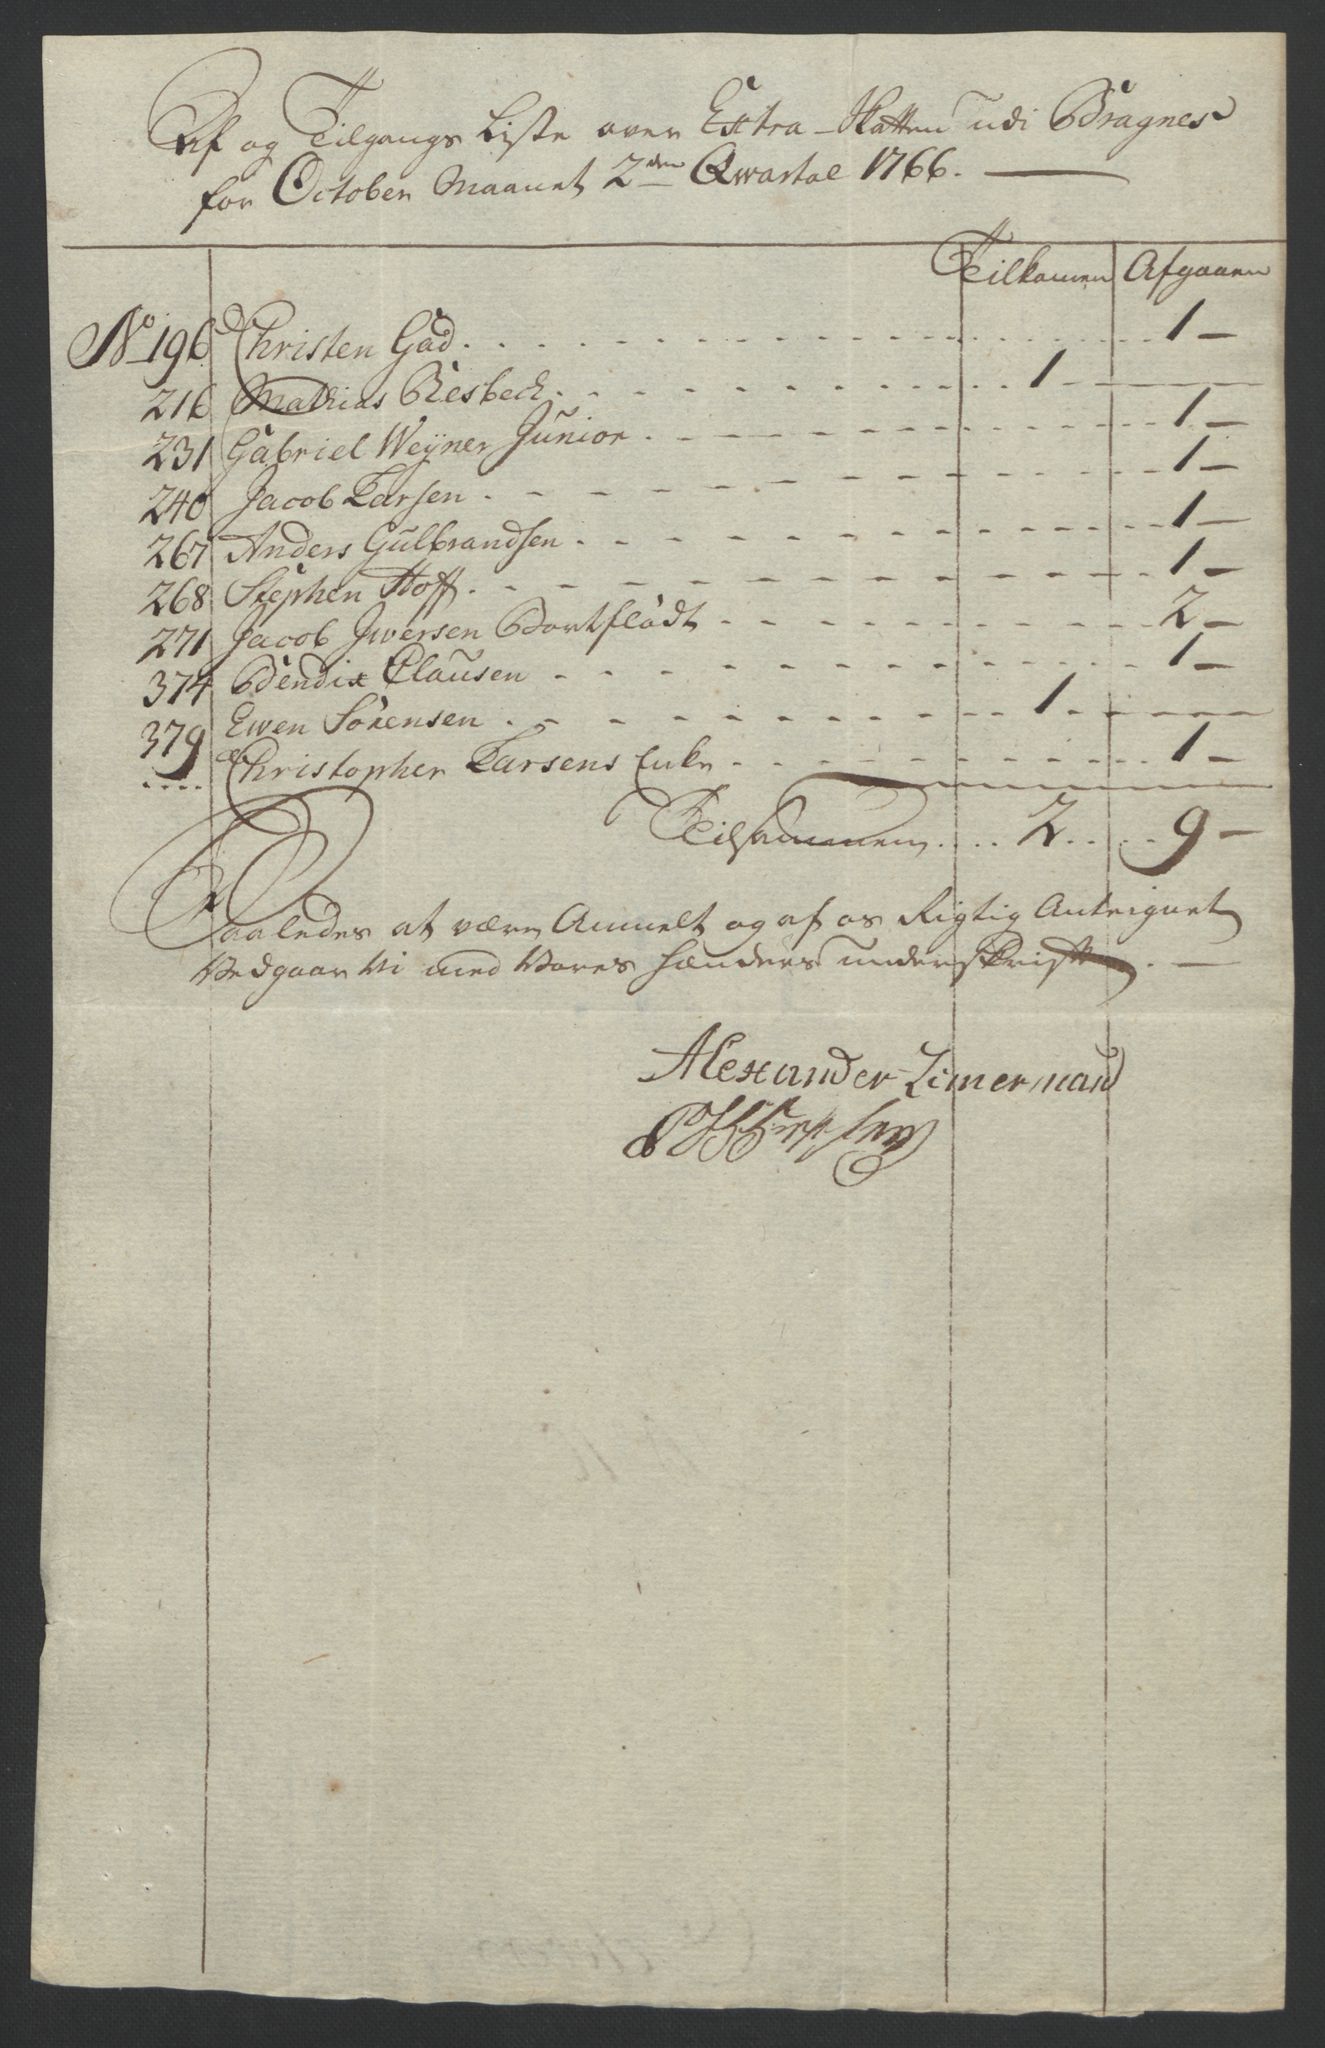 Af og Tilgangs Liste over Extra-Skatten udi Bragnes
for October Maanet 2den Qwartal 1766.
Tilkomen Afgaaen
No 196 Christen Gad 1
216 Mathias Resbeck 1
231 Gabriel Weyner Junior 1
240 Jacob Larsen 1
267 Anders Gulbrandsen 1
268 Stephen Hoff 1
271 Jacob Jwersen Bortflødt 2
374 Bendix Clausen 1
379 Ewen Sørensen 1
.... Christopher Larsens Enke 1
Tilsammen 2 9
Saaledes at være Anmelt og af os Rigtig Anteignet
Vedgaar Vi med Vores hænders underskrift.
Alexander Zimerman